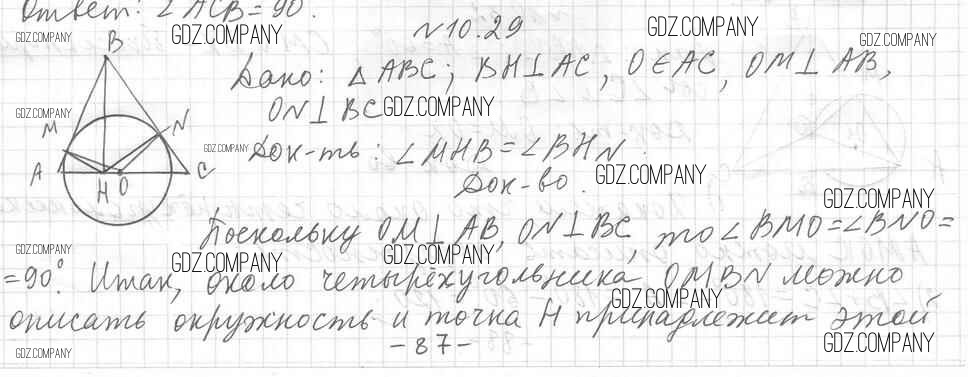 Ответ: ∠ACB = 90°.
GDZ.COMPANY GDZ.COMPANY GDZ.COMPANY GDZ.COMPANY
№10.29
B
Дано: △ABC; BH⊥AC, O∈AC, OM⊥AB,
GDZ.COMPANY ON⊥BC GDZ.COMPANY
M N
GDZ.COMPANY Док-ть: ∠MHB=∠BHN.
A H O C
Док-во. GDZ.COMPANY
GDZ.COMPANY
Поскольку OM⊥AB, ON⊥BC, то ∠BMO=∠BNO=
GDZ.COMPANY GDZ.COMPANY GDZ.COMPANY
=90°. Итак, около четырёхугольника OMBN можно
GDZ.COMPANY
описать окружность и точка H принадлежит этой
GDZ.COMPANY -87- GDZ.COMPANY